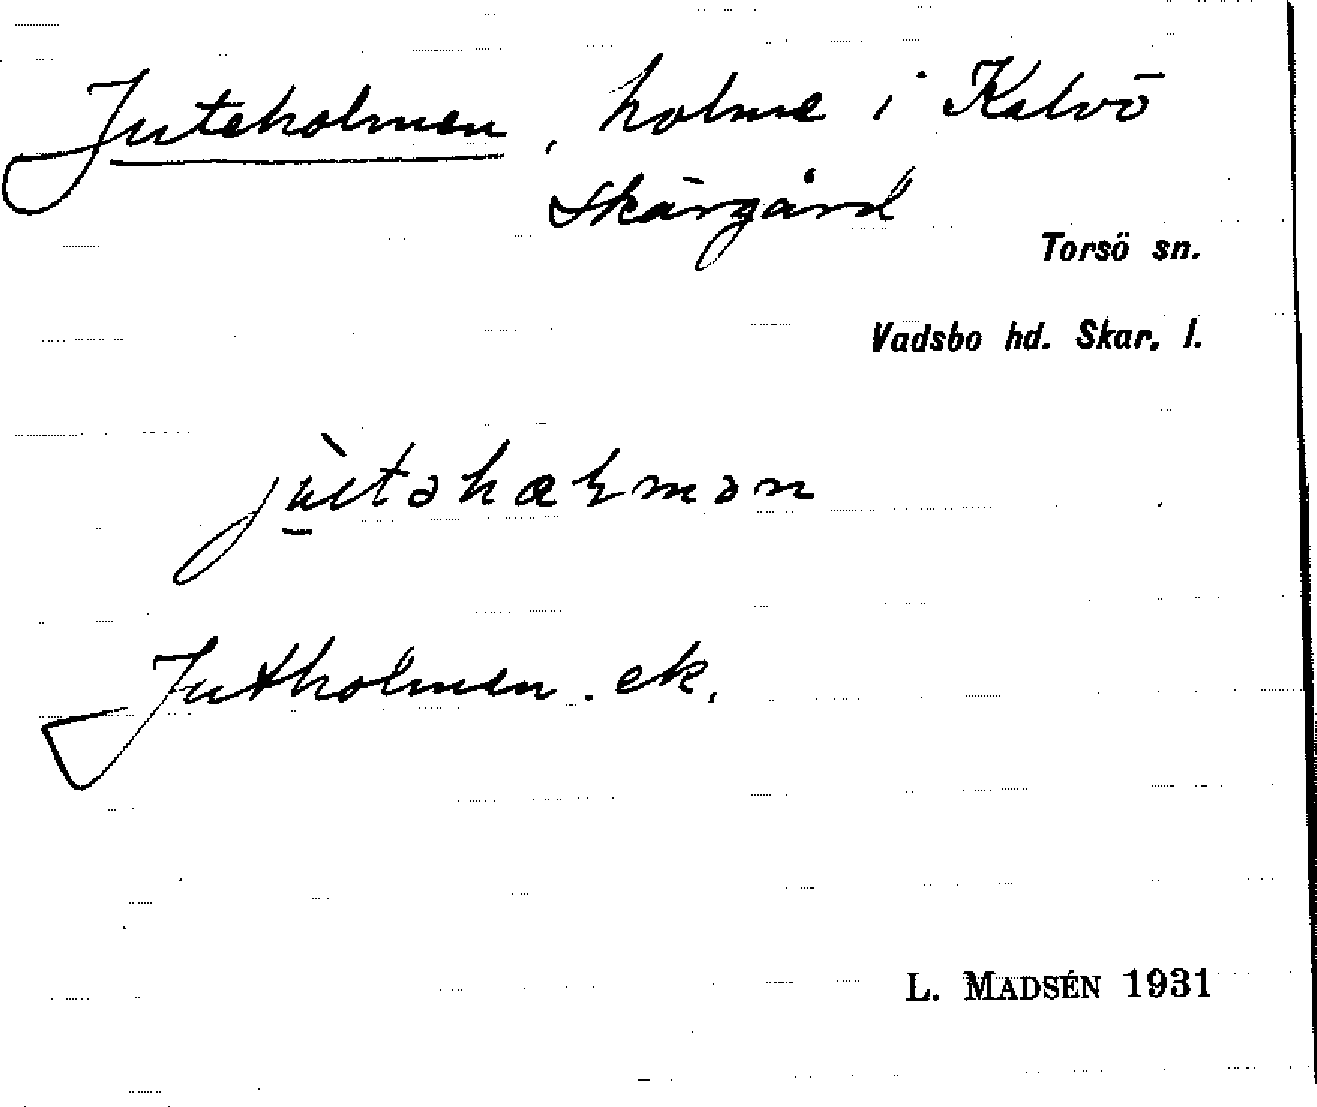 Juteholmen, holme i Kalvö
Skärgård
Torsö sn.
Vadsbo hd. Skar. l.
Jutholmen. ek.
L. MADSÉN 1931